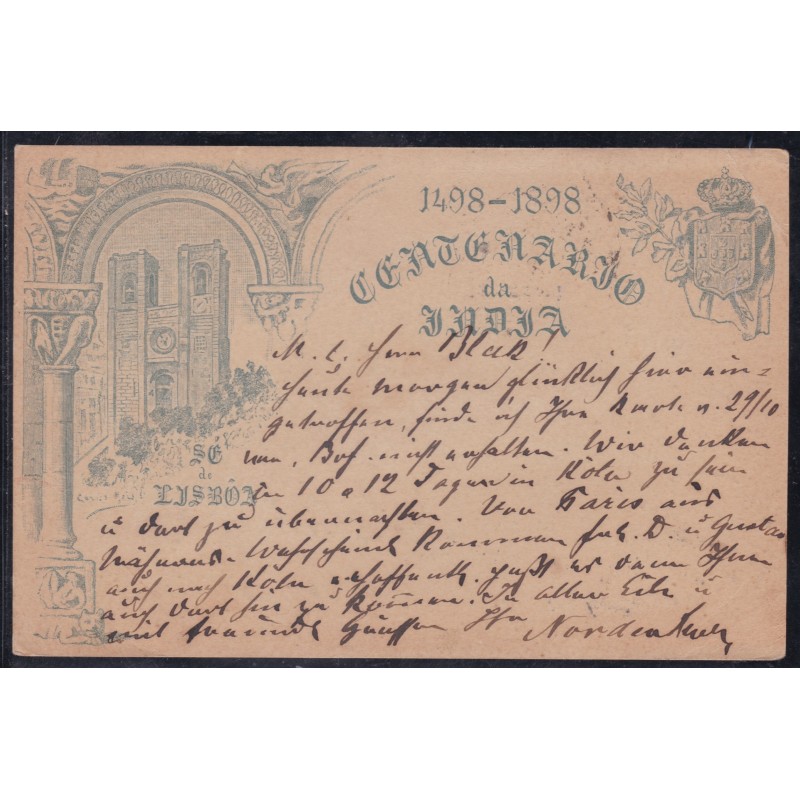 1498-1898
CENTENARIO
da
INDIA
SÉ
de
LISBÔA
M. l. Herr Black!
heute morgen glücklich hier ein-
getroffen, finde ich Ihre Karte v. 29/10
vor, Brf. nicht erhalten. Wir denken
in 10 a 12 Tagen in Köln zu sein
u dort zu übernachten. Von Paris aus
kommen D. u Gustav
auch nach Köln hoffentl. paßt es dann Ihnen
auch dort hin zu kommen. In aller Eile u
mit freundl Grüssen Ihr